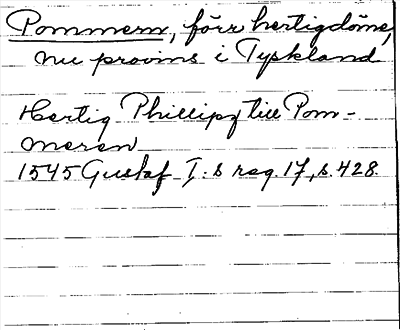 Pommern, förr hertigdöme,
nu provins i Tyskland
Hertig Phillips till Pom-
mern
1545 Gustaf I:s reg. 17, s. 428.